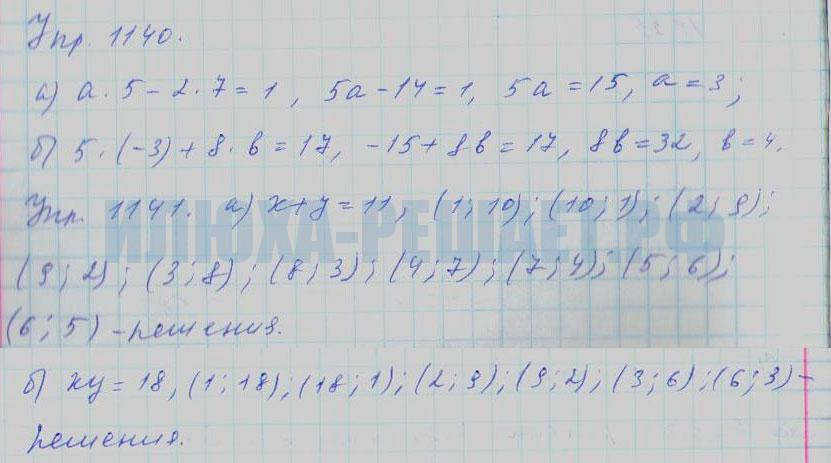 Упр. 1140.
а) a · 5 - 2 · 7 = 1, 5a - 14 = 1, 5a = 15, a = 3;
б) 5 · (-3) + 8 · b = 17, -15 + 8b = 17, 8b = 32, b = 4.
Упр. 1141. а) x + y = 11, (1; 10); (10; 1); (2; 9);
ИЛЮХА-РЕШАЕТ.РФ
(9; 2); (3; 8); (8; 3); (4; 7); (7; 4); (5; 6);
(6; 5) - решения.
б) xy = 18, (1; 18); (18; 1); (2; 9); (9; 2); (3; 6); (6; 3) -
решения.